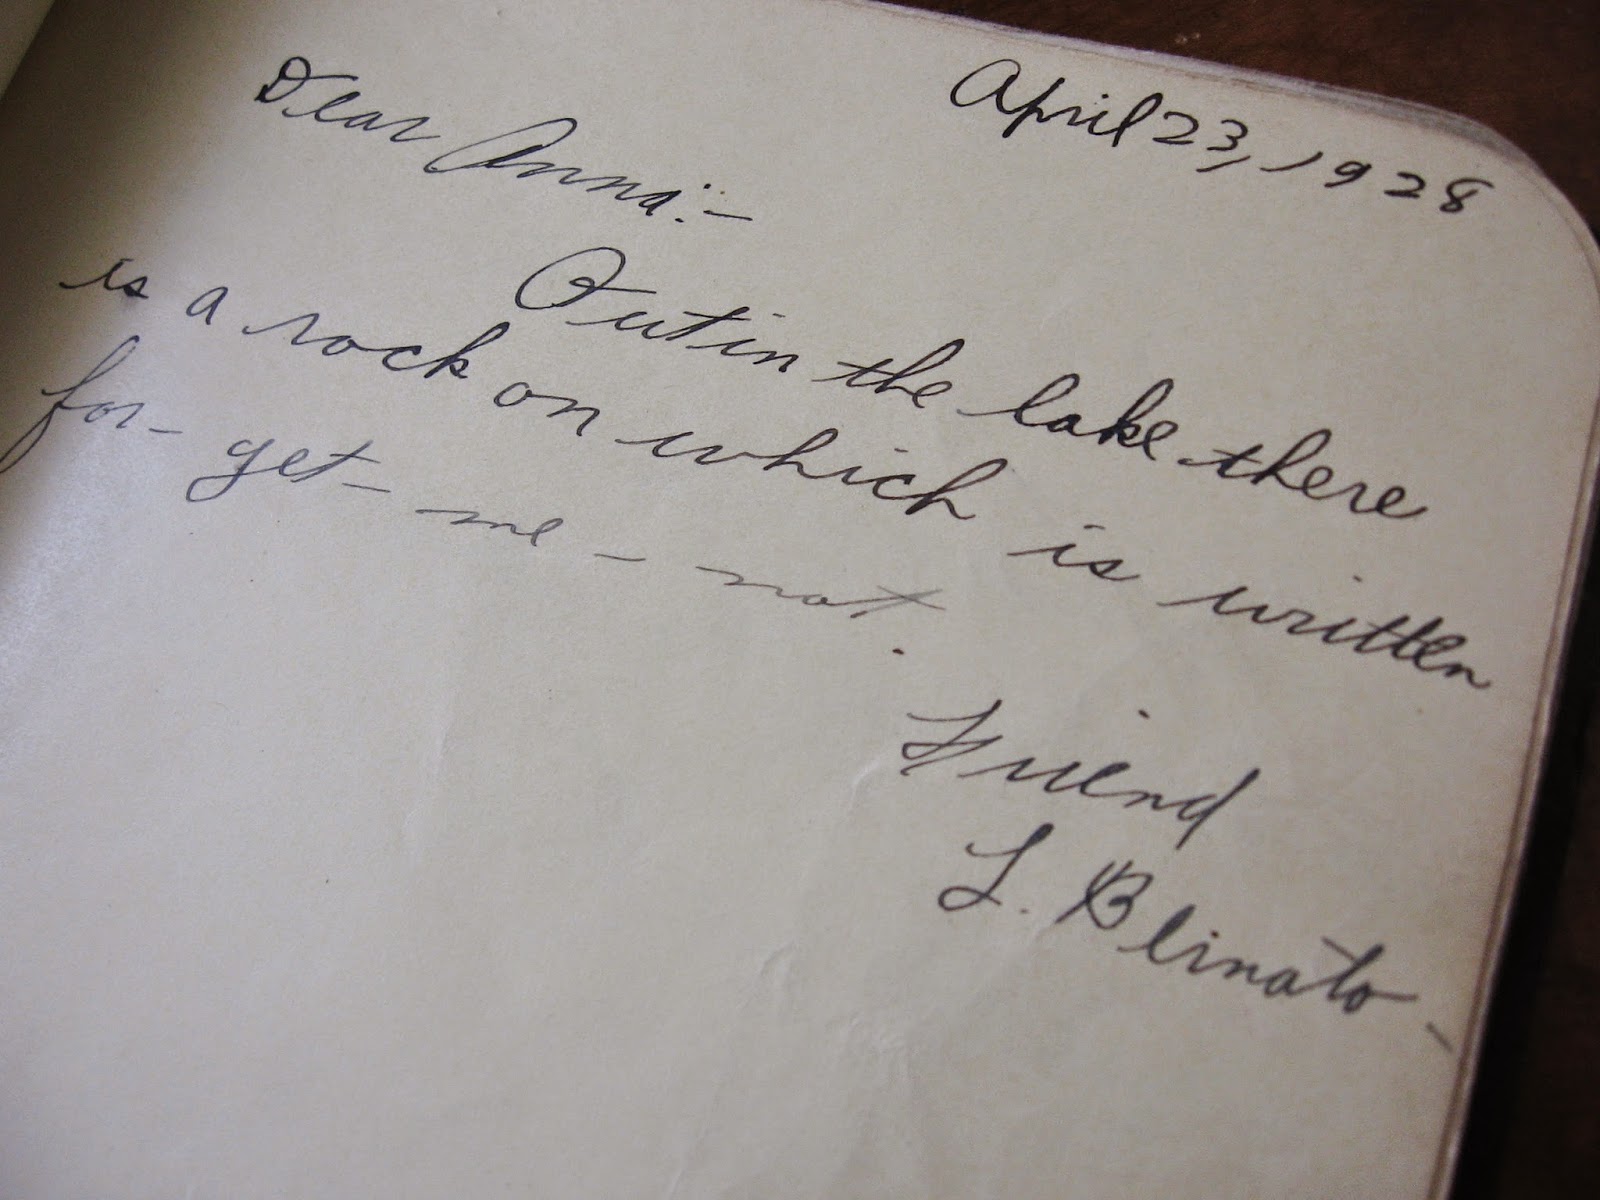 April 23, 1928
Dear Anna:-
Out in the lake there
is a rock on which is written
for-get-me-not.
Friend
L. Blinato-